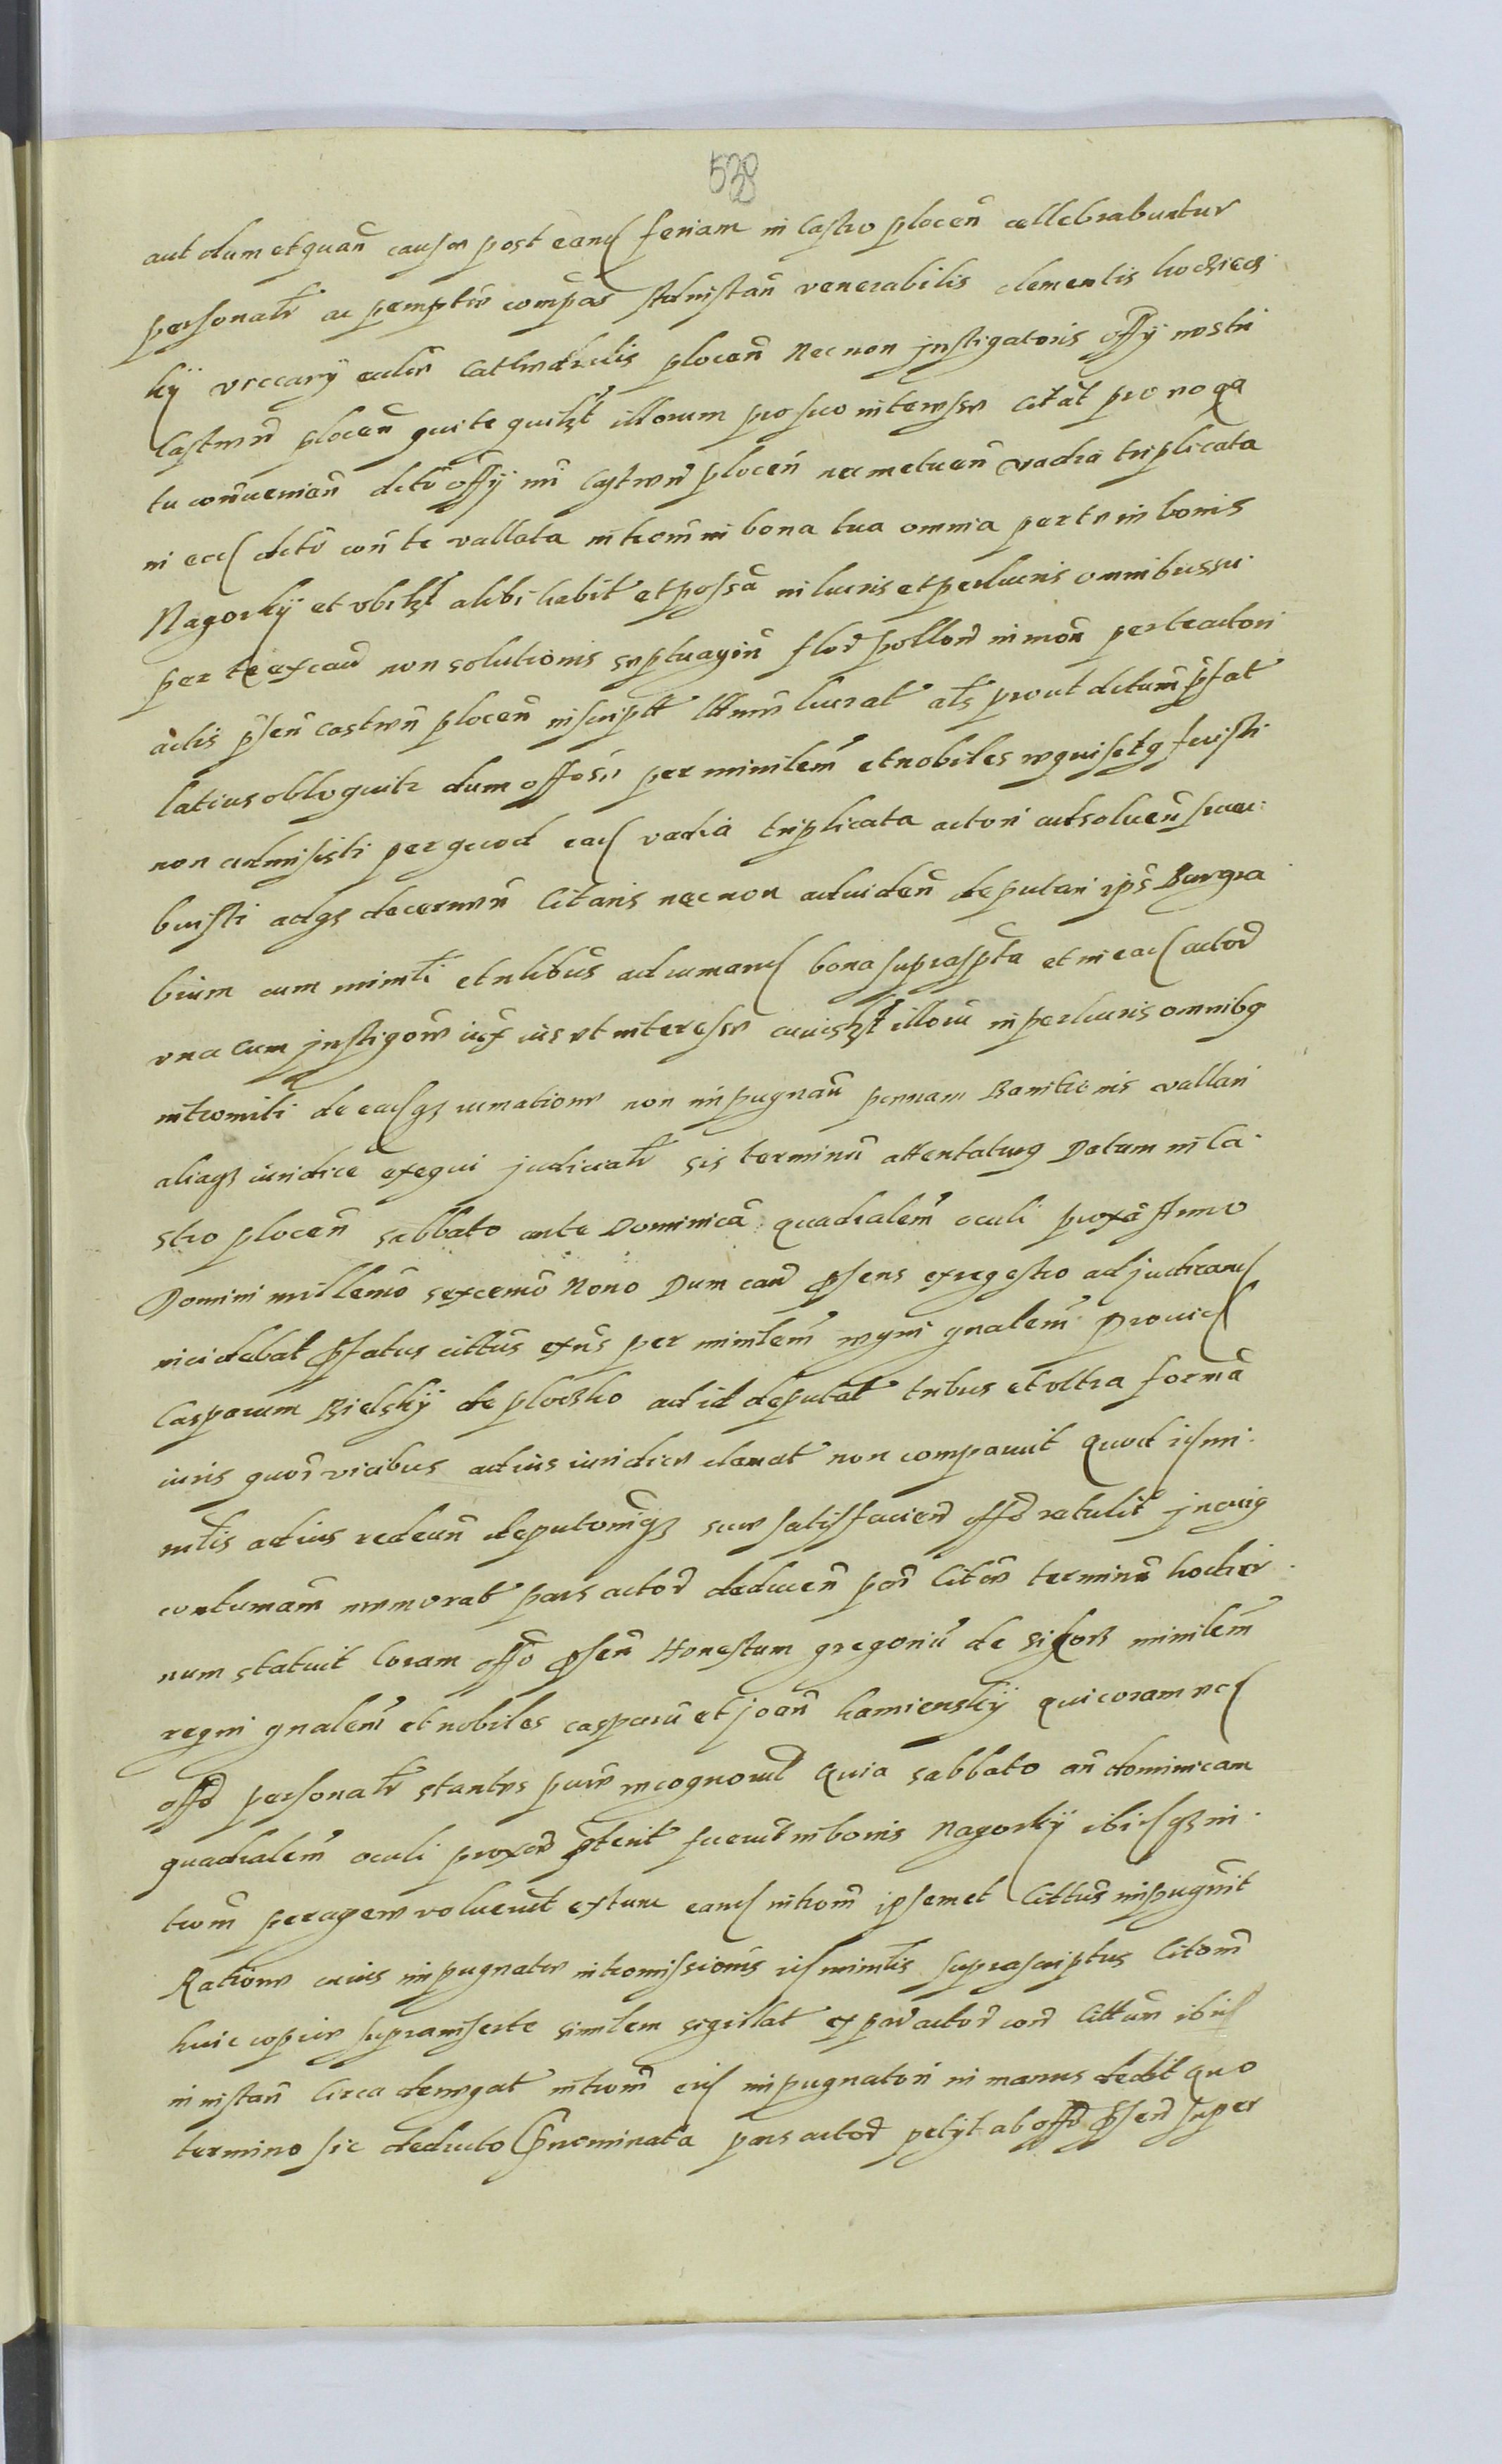 538
aut dum et quan̄ causæ post eand feriam in Castro plocen̄ cellebrabuntur
personalr̄ ac pemptīe compas adinstan̄ venerabilis clementis
kÿ viccarÿ eccliæ Cathedralis plocen̄ Nec non jnstigatoris offÿ nostri
Castren̄ plocen̄ qui te quilꝫt illorum pro suo interesse citat pro
tu conūenien̄ dcto offÿ nri Castren̄ plocen̄ nec metuen̄ vadia triplicata
in eod dcto con̄ te vallata introm̄ in bona tua omnia per te in bonis
Nagorkÿ et vbilꝫt alibi habit et possa in lucris et perlucris omnibus
per te ex cau non solutionis septuagin̄ flor pollon in mon per te actori
actis p̄sen castren̄ plocen̄ inscript lucrat als prout dctum p̄fat
latius obloquitr dum offose per ministem̄ et nobiles requisitꝯ fuisti
non admisisti per quod ead vadia triplicata actori adsoluen succu
buisti adqꝫ decernen̄ Citaris nec non aduiden̄ deputari ips Burgra
bium cum minrli et nlibus ad iamand bona suprasp̄ta et in ead actor
vna cum jnstigore iux ius et interesse cuislꝫt illoru in perlucris omnibꝯ
intromitti de eadqꝫ iamatione non impugnan pennam Banitionis vallari
aliaqꝫ iuridice exequi judicialr̄ sis terminu attentaturꝯ Datum in Ca
stro plocen̄ sabbato ante Dominica quadralem̄ oculi proxa Anno
Domini millemo sexcemo Nono Dum eand p̄sens ex regestro adjudicand
incidebat p̄fatus cittus exns per ministem̄ regni gnalem̄ prouid
Casparum Bielskÿ de plocsko ad id deputat tribus et vltra forma
iuris quor vicibus ad ius iuridice clamat non comparuit Quod id mi
nrlis ad ius redeun deputoniqꝫ sue satisfacien offo retulit jn cuiꝯ
contumam memorat pars actor deducen par Citois terminu hodier
num statuit Coram offo p̄sen Honestum gregoriu de sikorꝫ ministem̄
regni gnalem̄ et nobiles casparu et joan kamienskÿ qui coram eod
offo personalr̄ stantes pure recognouet Quia sabbato an dominicam
quadralem̄ oculi proxe p̄terit fuerut in bonis Nagorkÿ ibidqꝫ in
trom peragere voluerut extunc eand introm ipsemet Cittus impugnit
Ratione cuius impugnate intromissionis id minrlis suprascriptus Citom
huic copiæ suprainserte similem sigillat ex par actor con Cittum ibid
in instan Circa denegat introm eid impugnatori in manus dedit Quo
termino sic deducto p̄nominata pars actor petÿt ab offo p̄sen super